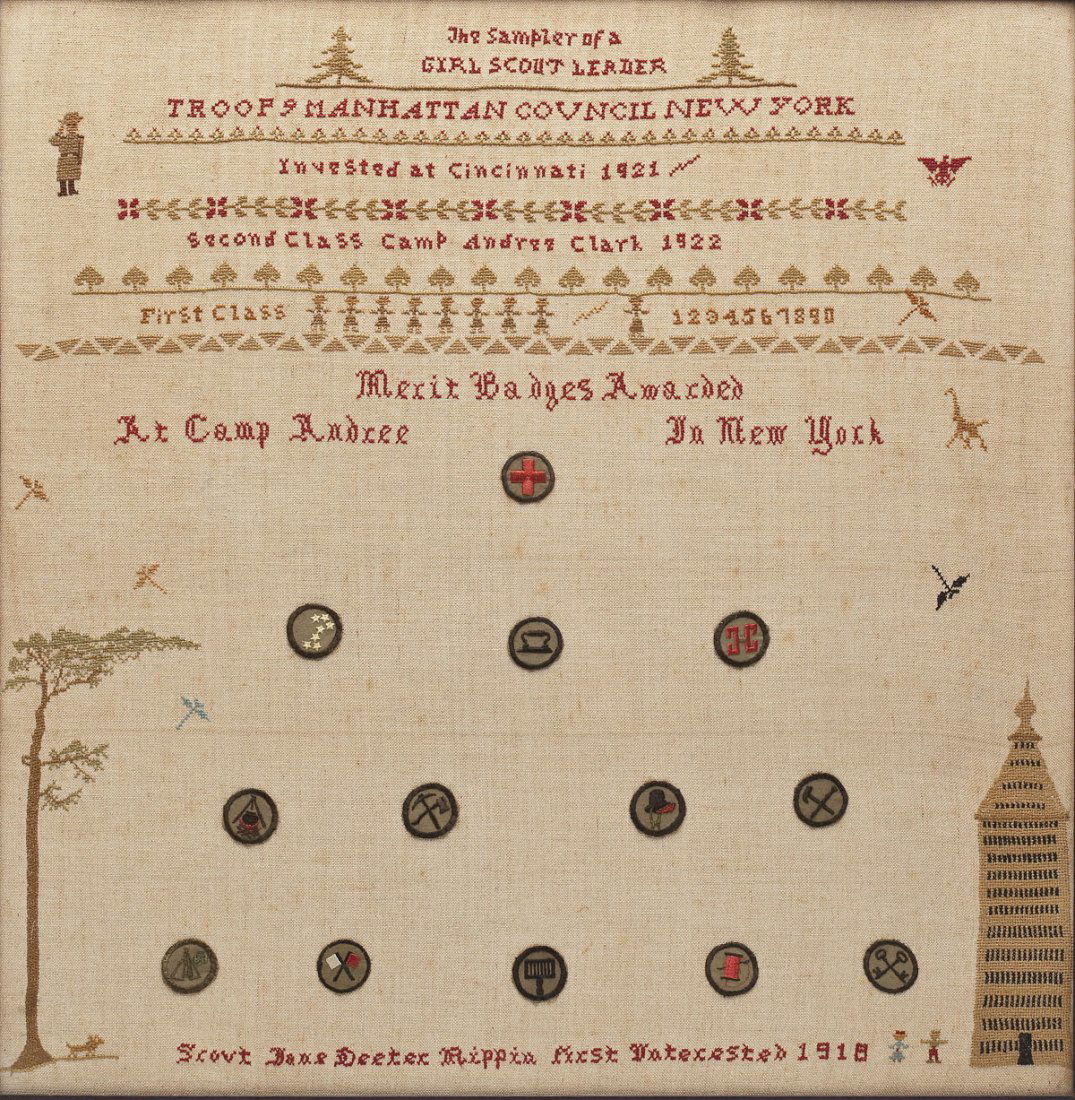 The Sampler of a
GIRL SCOUT LEADER
TROOP 9 MANHATTAN COVNCIL NEW YORK
Invested at Cincinnati 1921
Second Class Camp Andree Clark 1922
First Class 1234567890
Merit Badges Awarded
At Camp Andree In New York
Scovt Jane Deeter Rippin first Interested 1918